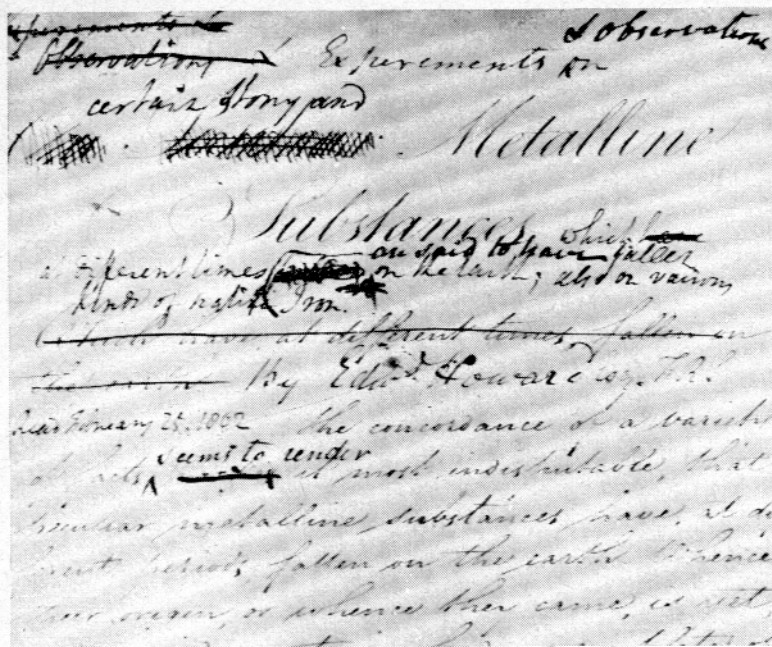 & observations
Observations Experiments on
certain Stony and
Metalline
Substances, which
at different times are said to have fallen
on the Earth; also on various
kinds of native Iron.
Which have at different times fallen on
By Edwd. Howard Esqr. F.R.S.
Read February 25, 1802 The concordance of a variety
of facts seems to render it most indisputable, that
peculiar metalline substances have, at dif
ferent periods fallen on the earth. Whence
their origin, or whence they came, is yet,